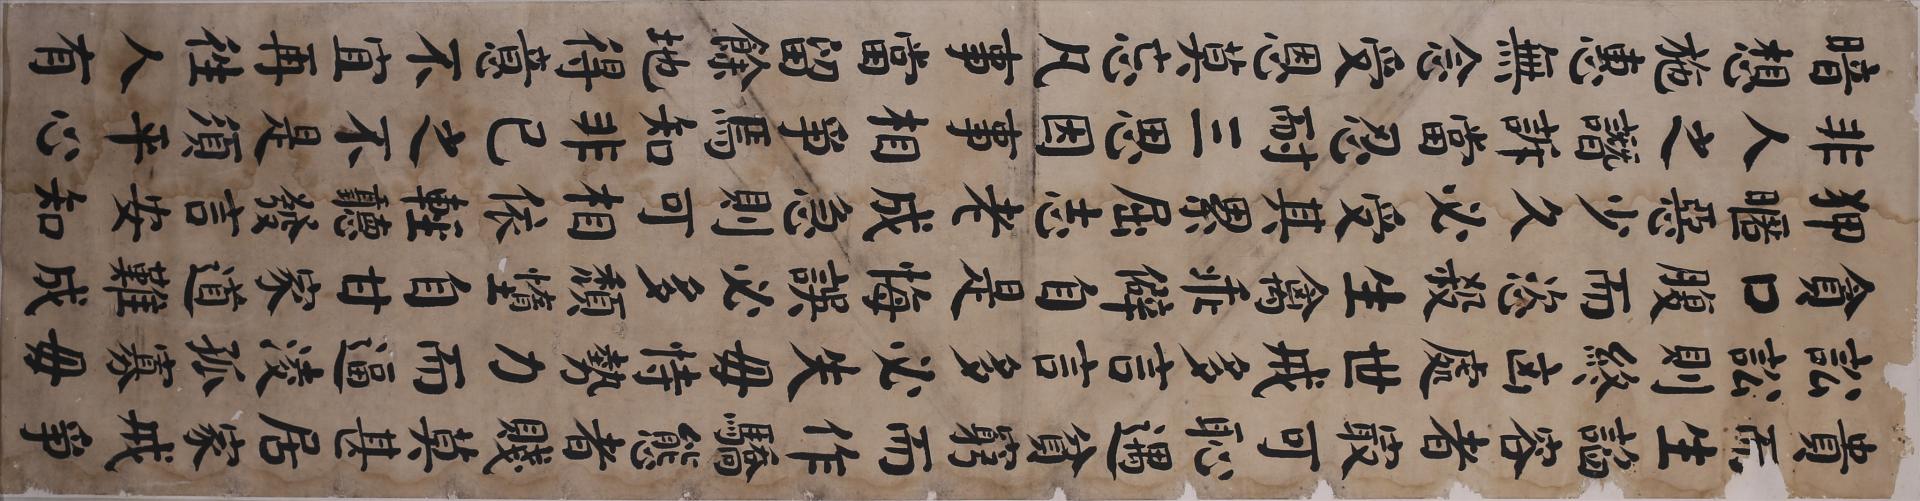 貴而生諂容者最可恥遇貧窮而作驕態者賤莫甚居家戒爭
訟訟則終凶處世戒多言言多必失毋恃勢力而逼淩孤寡毋
貪口腹而恣殺生禽乖僻自是悔誤必多頹惰自甘家道難成
狎暱惡少久必受其累屈志老成急則可相依輕聽發言安知
非人之譖訴當忍耐三思因事相爭焉知非己之不是須平心
暗想施惠無念受恩莫忘凡事當留餘地得意不宜再往人有